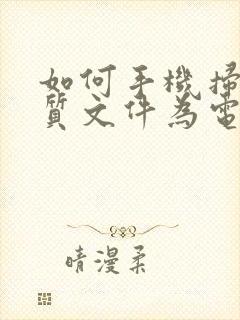 如何手機掃
質文件為電
晴漫柔